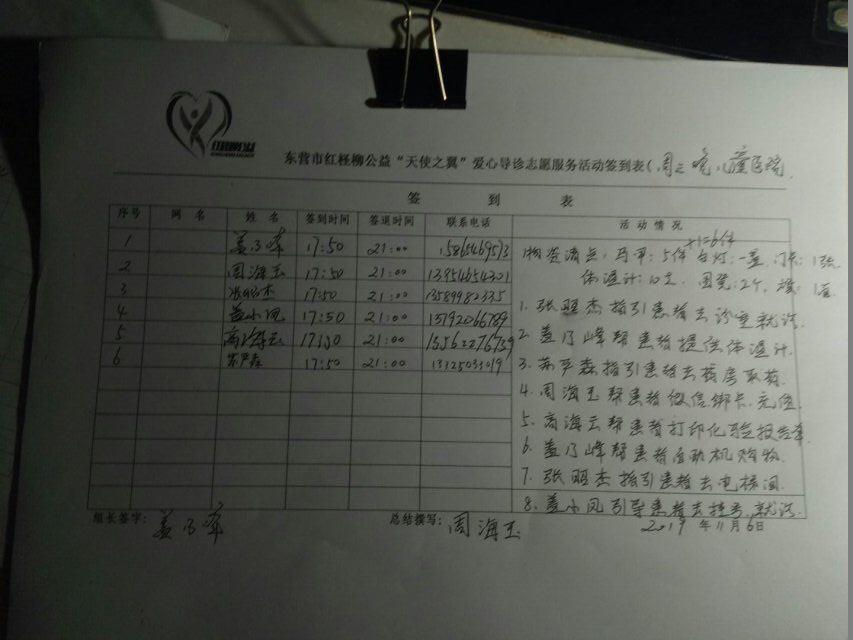 东营市红柽柳公益“天使之翼”爱心导诊志愿服务活动签到表(周三晚 儿童医院
签 到 表
序号 网名 姓名 签到时间 签退时间 联系电话 活动情况
1 盖乃峰 17:50 21:00
2 周海玉 17:50 21:00 13954654301
3 张昭杰 17:50 21:00 13589982335
4 盖小凤 17:50 21:00 13792066789
5 高海云 17:50 21:00
6 苏平森 17:50 21:00 13325033019
物资清点: 马甲:5件 台灯:一盏 门卡:1张
体温计:10支
1. 张昭杰指引患者去诊室就诊.
2. 盖乃峰帮患者提供体温计.
3. 苏平森指引患者去药房取药.
4. 周海玉帮患者微信绑卡.充值.
5. 高海云帮患者打印化验报告单
6. 盖乃峰帮患者自助机购物.
7. 张昭杰指引患者去电梯间.
8. 盖小凤引导患者去挂号.就诊.
组长签字: 盖乃峰 总结撰写: 周海玉 2019年11月6日